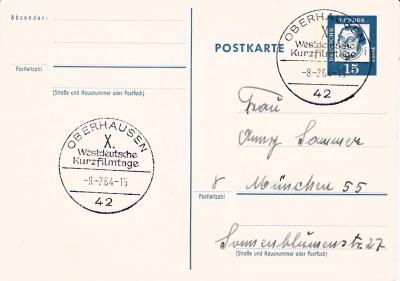 Absender:
Postleitzahl
(Straße und Hausnummer oder Postfach)
OBERHAUSEN
X.
Westdeutsche
Kurzfilmtage
-8.-2.64-15
42
POSTKARTE
OBERHAUSEN
X.
Westdeutsche
Kurzfilmtage
-8.-2.64-15
42
DEUTSCHE
LUTHER
15
Frau
Anny Sommer
8 München 55
Postleitzahl
Sonnenblumenstr. 27
(Straße und Hausnummer oder Postfach)